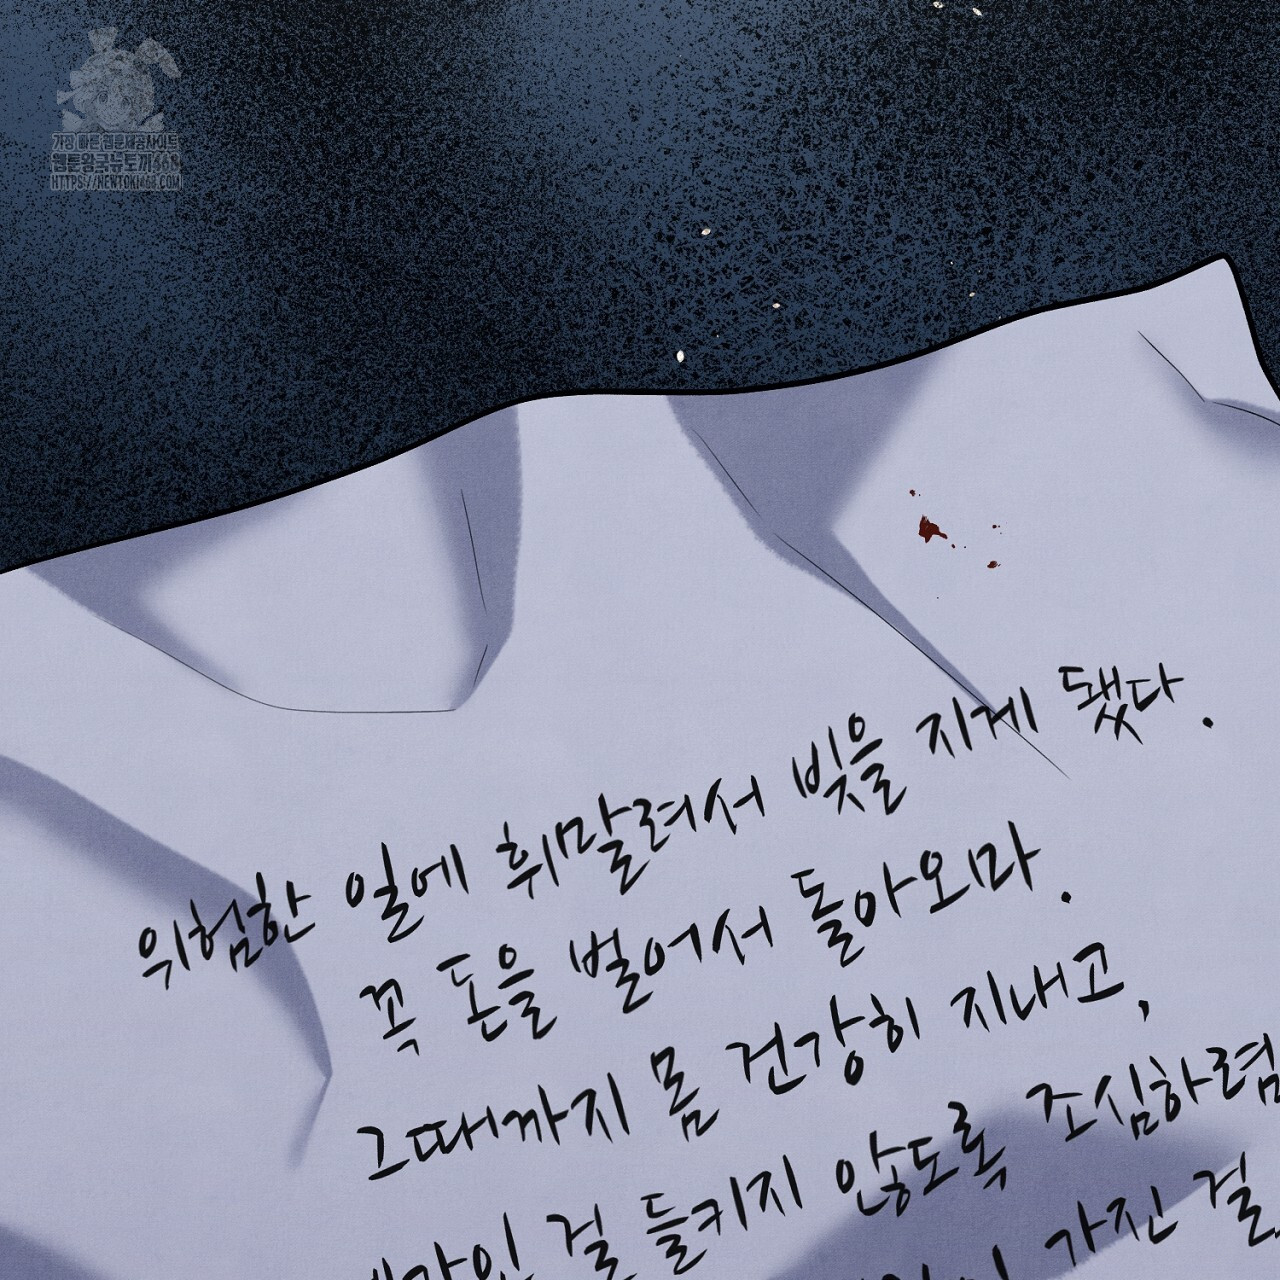 가장 빠른 웹툰제공사이트
웹툰왕국뉴토끼468
HTTPS://NEWTOKI468.COM
위험한 일에 휘말려서 빚을 지게 됐다.
꼭 돈을 벌어서 돌아오마.
그때까지 몸 건강히 지내고,
걸 들키지 않도록 조심하렴
가진 걸